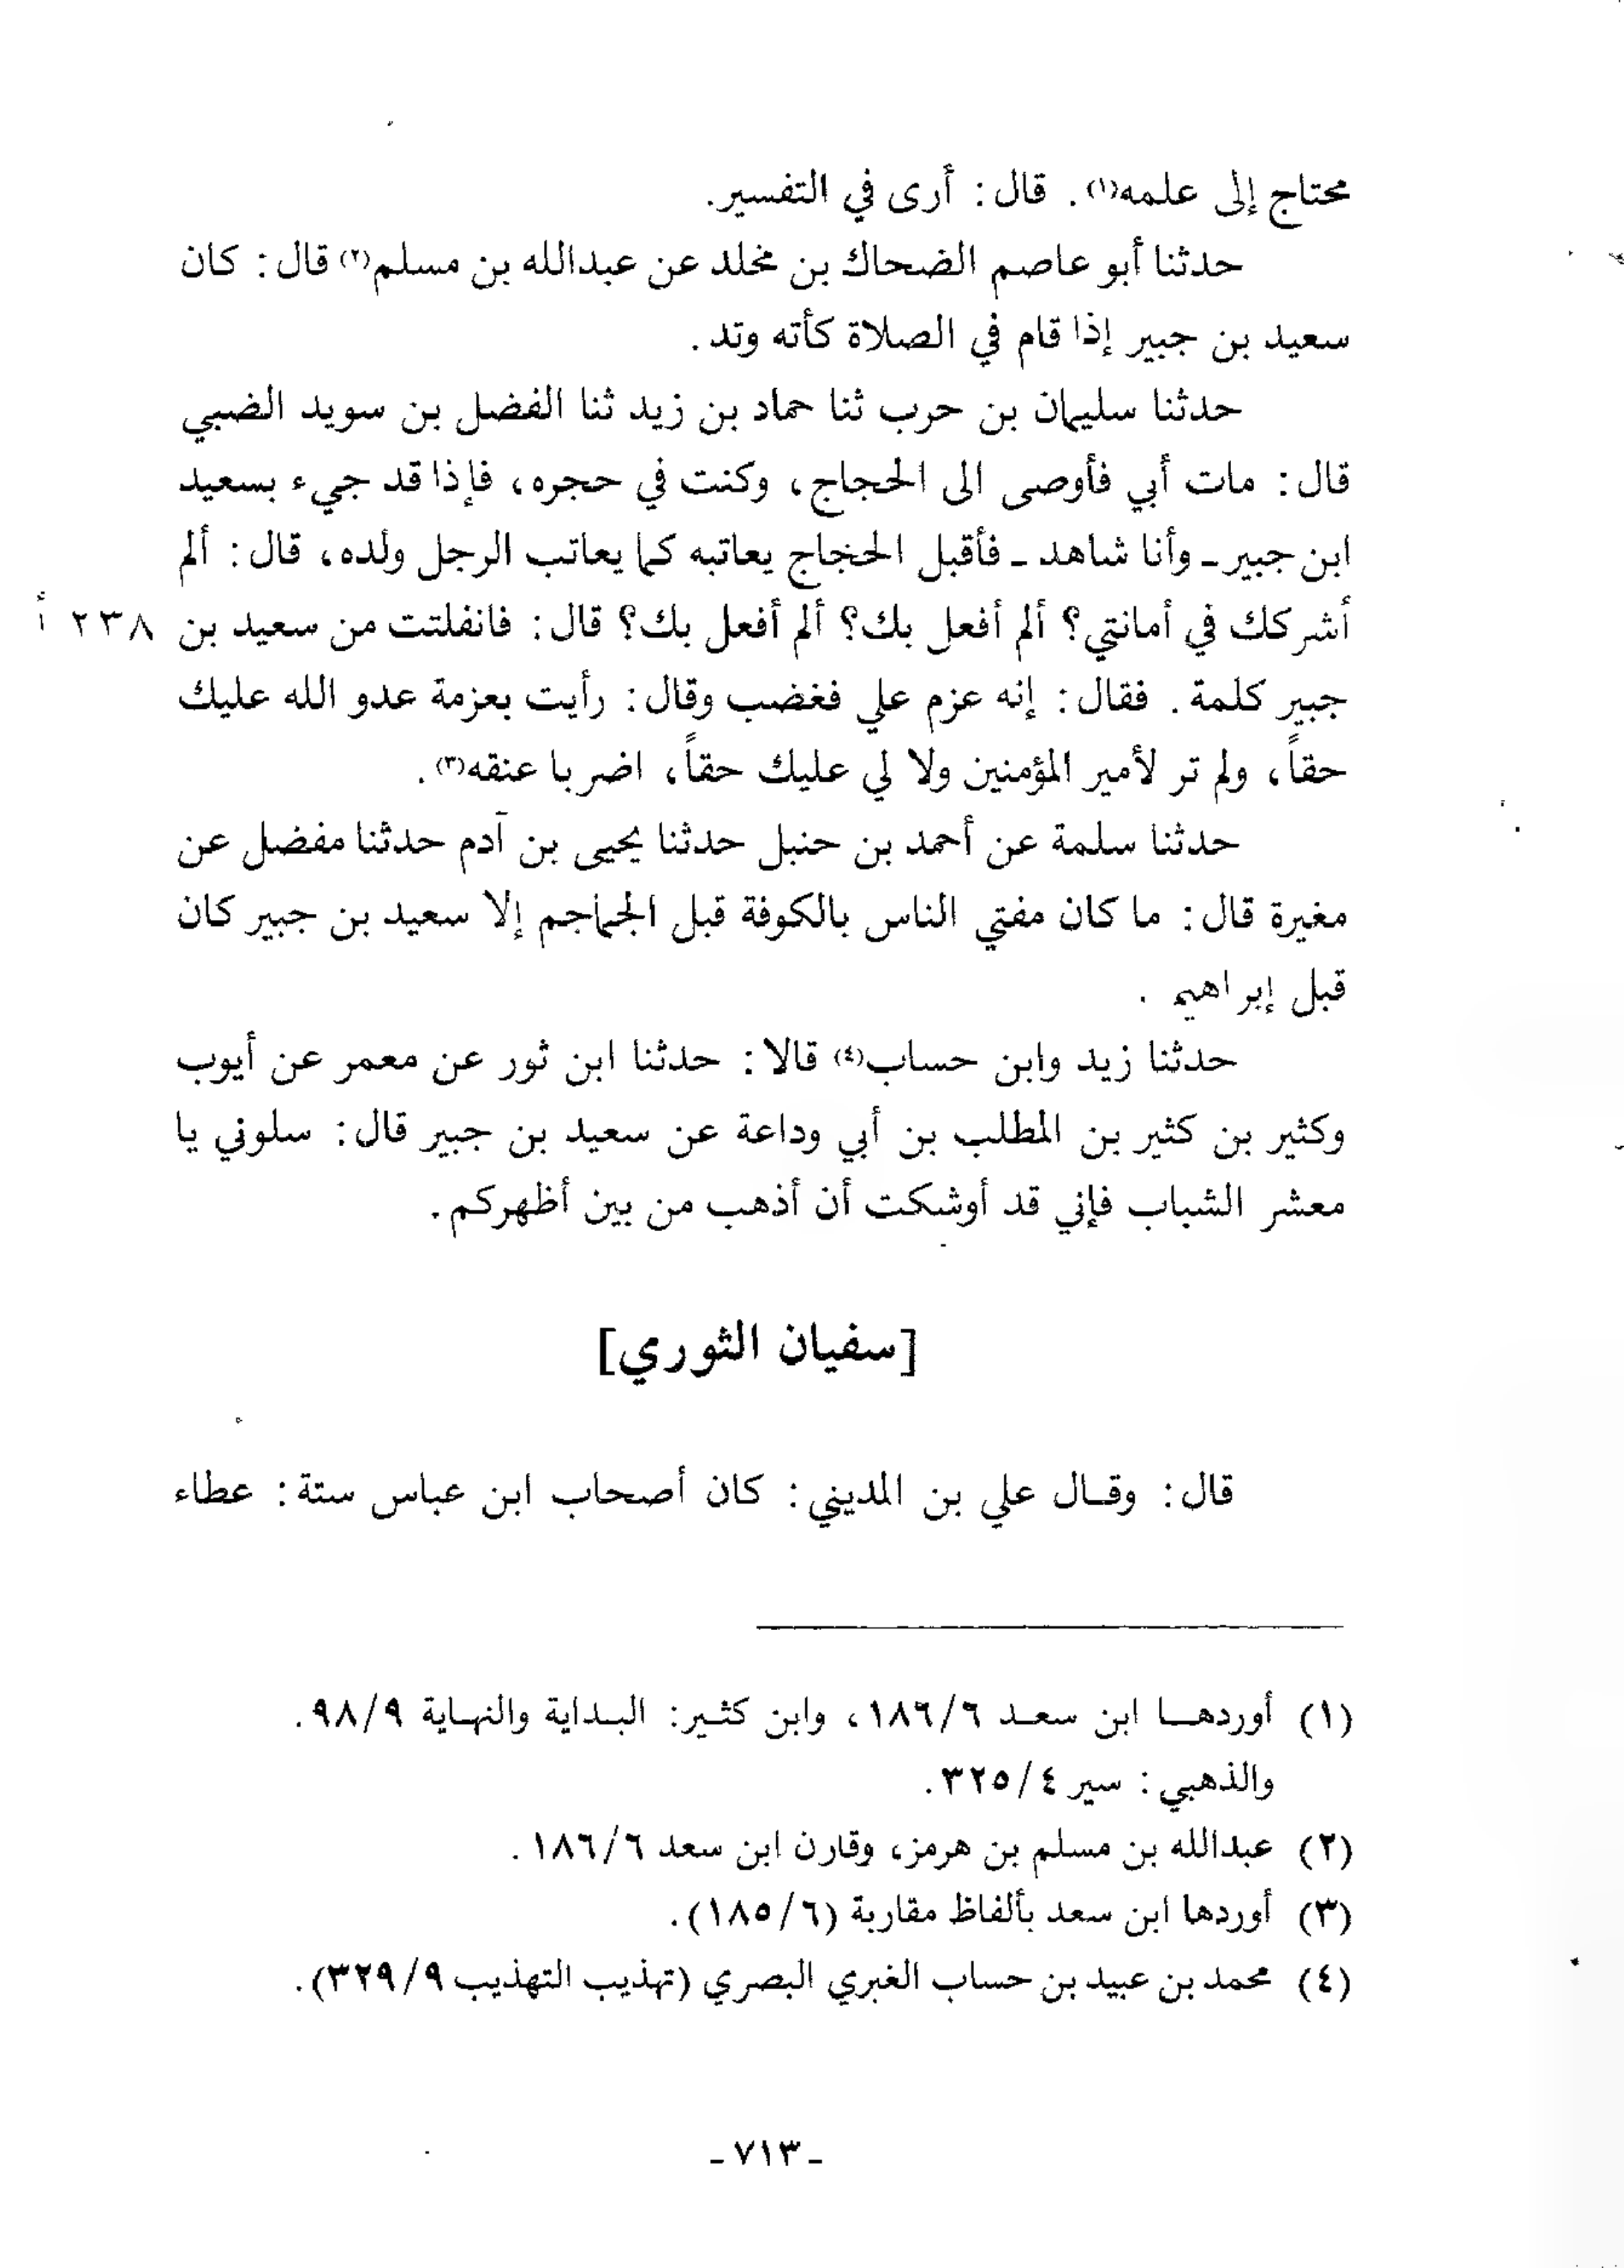 محتاج إلى علمه(١). قال: أرى في التفسير.
حدثنا أبو عاصم الضحاك بن مخلد عن عبدالله بن مسلم(٢) قال: كان
سعيد بن جبير إذا قام في الصلاة كأنه وتد.
حدثنا سليمان بن حرب ثنا حماد بن زيد ثنا الفضل بن سويد الضبي
قال: مات أبي فأوصى الى الحجاج، وكنت في حجره، فإذا قد جيء بسعيد
ابن جبير ـ وأنا شاهد ـ فأقبل الحجاج يعاتبه كما يعاتب الرجل ولده، قال: ألم
أشركك في أمانتي؟ ألم أفعل بك؟ ألم أفعل بك؟ قال: فانفلتت من سعيد بن ٢٣٨ أ
جبير كلمة. فقال: إنه عزم علي فغضب وقال: رأيت بعزمة عدو الله عليك
حقاً، ولم تر لأمير المؤمنين ولا لي عليك حقاً، اضربا عنقه(٣).
حدثنا سلمة عن أحمد بن حنبل حدثنا يحيى بن آدم حدثنا مفضل عن
مغيرة قال: ما كان مفتي الناس بالكوفة قبل الجماجم إلا سعيد بن جبير كان
قبل إبراهيم.
حدثنا زيد وابن حساب(٤) قالا: حدثنا ابن ثور عن معمر عن أيوب
وكثير بن كثير بن المطلب بن أبي وداعة عن سعيد بن جبير قال: سلوني يا
معشر الشباب فإني قد أوشكت أن أذهب من بين أظهركم.
[سفيان الثوري]
قال: وقال علي بن المديني: كان أصحاب ابن عباس ستة: عطاء
(١) أوردها ابن سعد ١٨٦/٦، وابن كثير: البداية والنهاية ٩٨/٩.
والذهبي: سير ٣٢٥/٤.
(٢) عبدالله بن مسلم بن هرمز، وقارن ابن سعد ١٨٦/٦.
(٣) أوردها ابن سعد بألفاظ مقاربة (١٨٥/٦).
(٤) محمد بن عبيد بن حساب الغبري البصري (تهذيب التهذيب ٣٢٩/٩).
ـ ٧١٣ ـ